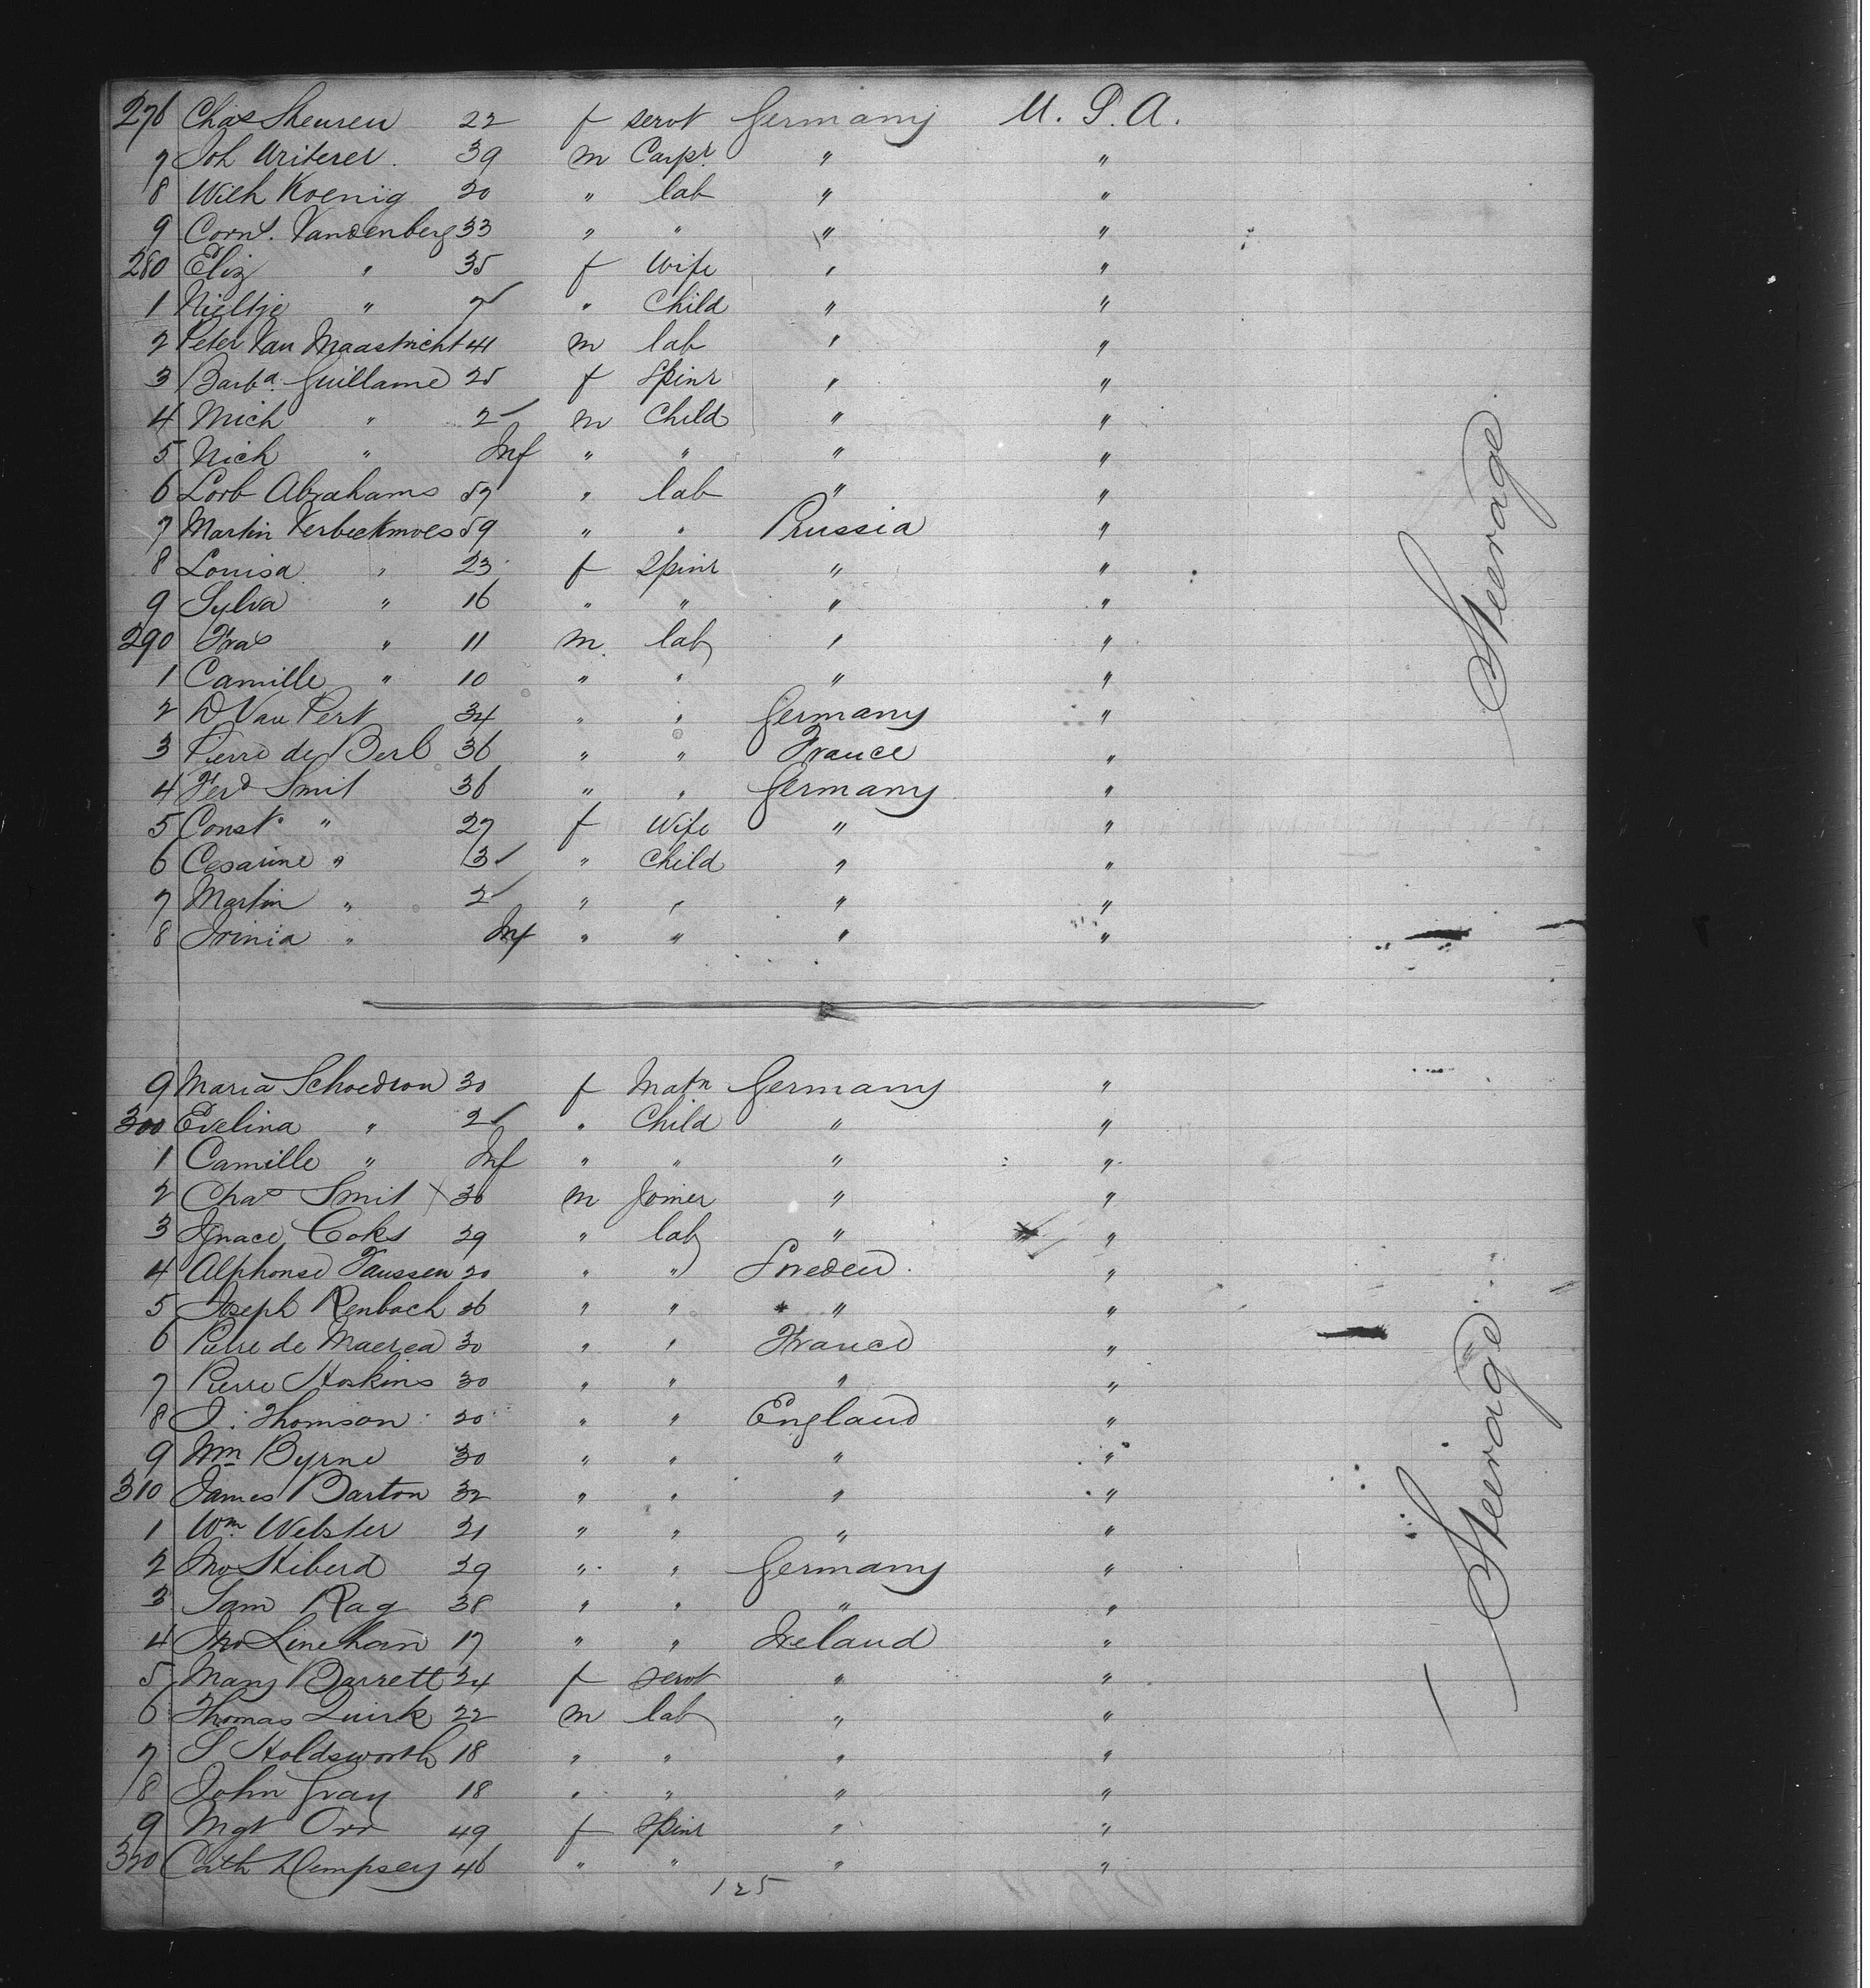 276 Chas Sheuren 22 f servt Germany U. S. A.
7 Joh Writerer. 39 m Carpr. " "
8 Wilh Koenig 20 " lab " "
9 Corns. Vandenberg 33 " " " "
280 Eliz " 35 f Wife " "
1 Nieltje " 7 " Child " "
2 Peter Van Maastricht 41 m lab " "
3 Barba. Guillame 25 f Spinr " "
4 Mich " 2 m Child " "
5 Nich " Inf " " " "
6 Lorb Abrahams 57 " lab " "
7 Martin Verbeckmoes 59 " " Prussia "
8 Louisa " 23 f Spinr " "
9 Sylva " 16 " " " "
290 Fras " 11 m. lab " "
1 Camille " 10 " " " "
2 D Van Pert 34 " " Germany "
3 Pierre de Berl 36 " " France "
4 Ferd Smit 36 " " Germany "
5 Const. " 27 f Wife " "
6 Cesarine " 3 " Child " "
7 Martin " 2 " " " "
8 Irinia " Inf " " " "
Steerage.
9 Maria Schoedron 30 f Matn Germany "
300 Evelina " 2 " Child " "
1 Camille " Inf " " " "
2 Chas Smit X 30 m Joiner " "
3 Ignace Coks 29 " lab " "
4 Alphonse Faussen 20 " " Sweden. "
5 Joseph Renbach 36 " " " "
6 Pierre de Maerea 30 " " France "
7 Pierre Hoskins 30 " " " "
8 J. Thomson 20 " " England "
9 Wm Byrne 30 " " " "
310 James Barton 32 " " " "
1 Wm. Webster 21 " " " "
2 Jno Hiberd 29 " " Germany "
3 Sam Rag 38 " " " "
4 Jno Linehan 17 " " Ireland "
5 Mary Barrett 24 f servt " "
6 Thomas Quirk 22 m lab " "
7 S Holdsworth 18 " " " "
8 John Gray 18 " " " "
9 Mgt Orr 49 f Spinr " "
320 Cath Dempsey 46 " " " "
Steerage.
125